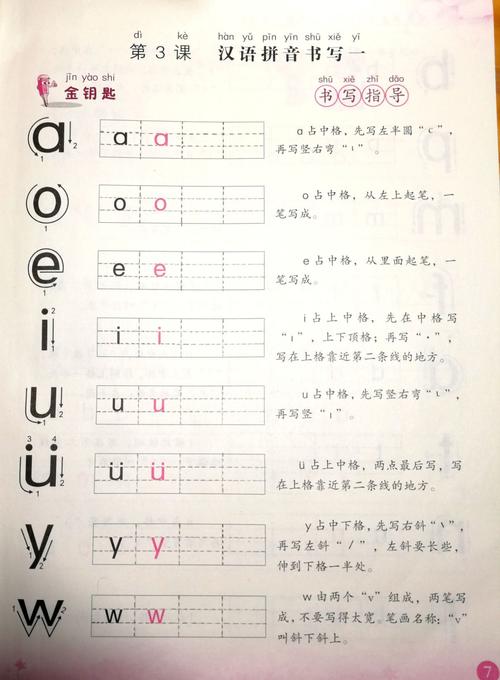 dì kè hàn yǔ pīn yīn shū xiě yī
第3课 汉语拼音书写一
jīn yào shi
金钥匙
shū xiě zhǐ dǎo
书写指导
a 2 1
a a
a占中格，先写左半圆“c”，
再写竖右弯“ɩ”。
o 1
o o
o占中格，从左上起笔，一
笔写成。
e 1
e e
e占中格，从里面起笔，一
笔写成。
i 2 1
i i
i占上中格，先在中格写
“ı”，上下顶格；再写“·”，
写在上格靠近第二条线的地方。
u 2 1
u u
u占中格，先写竖右弯“ɩ”，
再写竖“ı”。
3 4
ü 2 1
ü ü
ü占上中格，两点最后写，写
在上格靠近第二条线的地方。
y 1 2
y y
y占中下格，先写右斜“\”，
再写左斜“/”，左斜要长些，
伸到下格一半处。
w 1 2
w w
w由两个“v”组成，两笔写
成，不要写得太宽。笔画名称：“v”
叫斜下斜上。
7